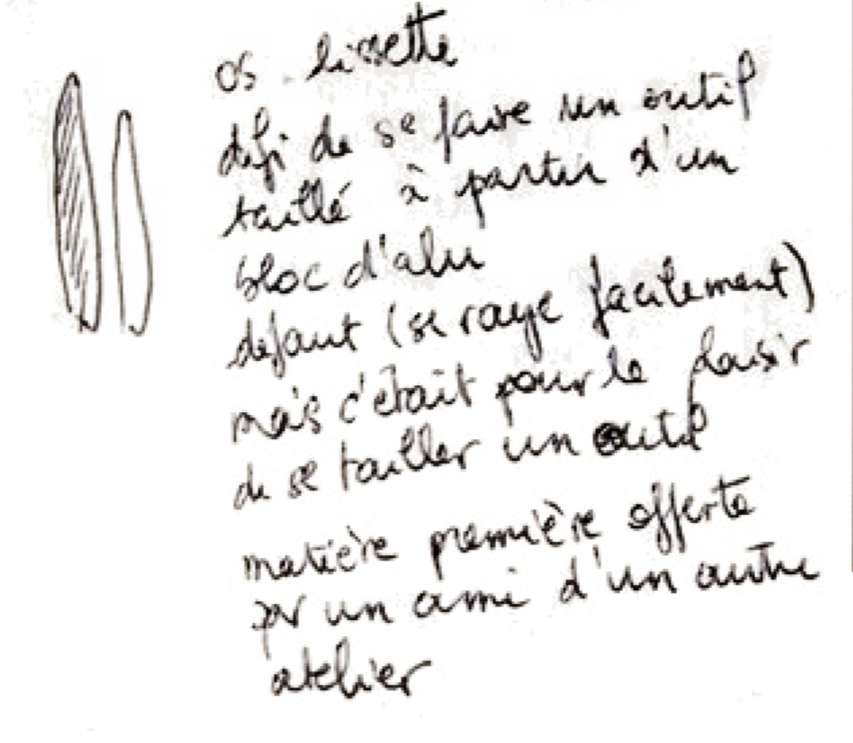 os lissette
défi de se faire un outil
taillé à partir d'un
bloc d'alu
defaut (se raye facilement)
mais c'était pour le plaisir
de se tailler un outil
matière première offerte
par un ami d'un autre
atelier